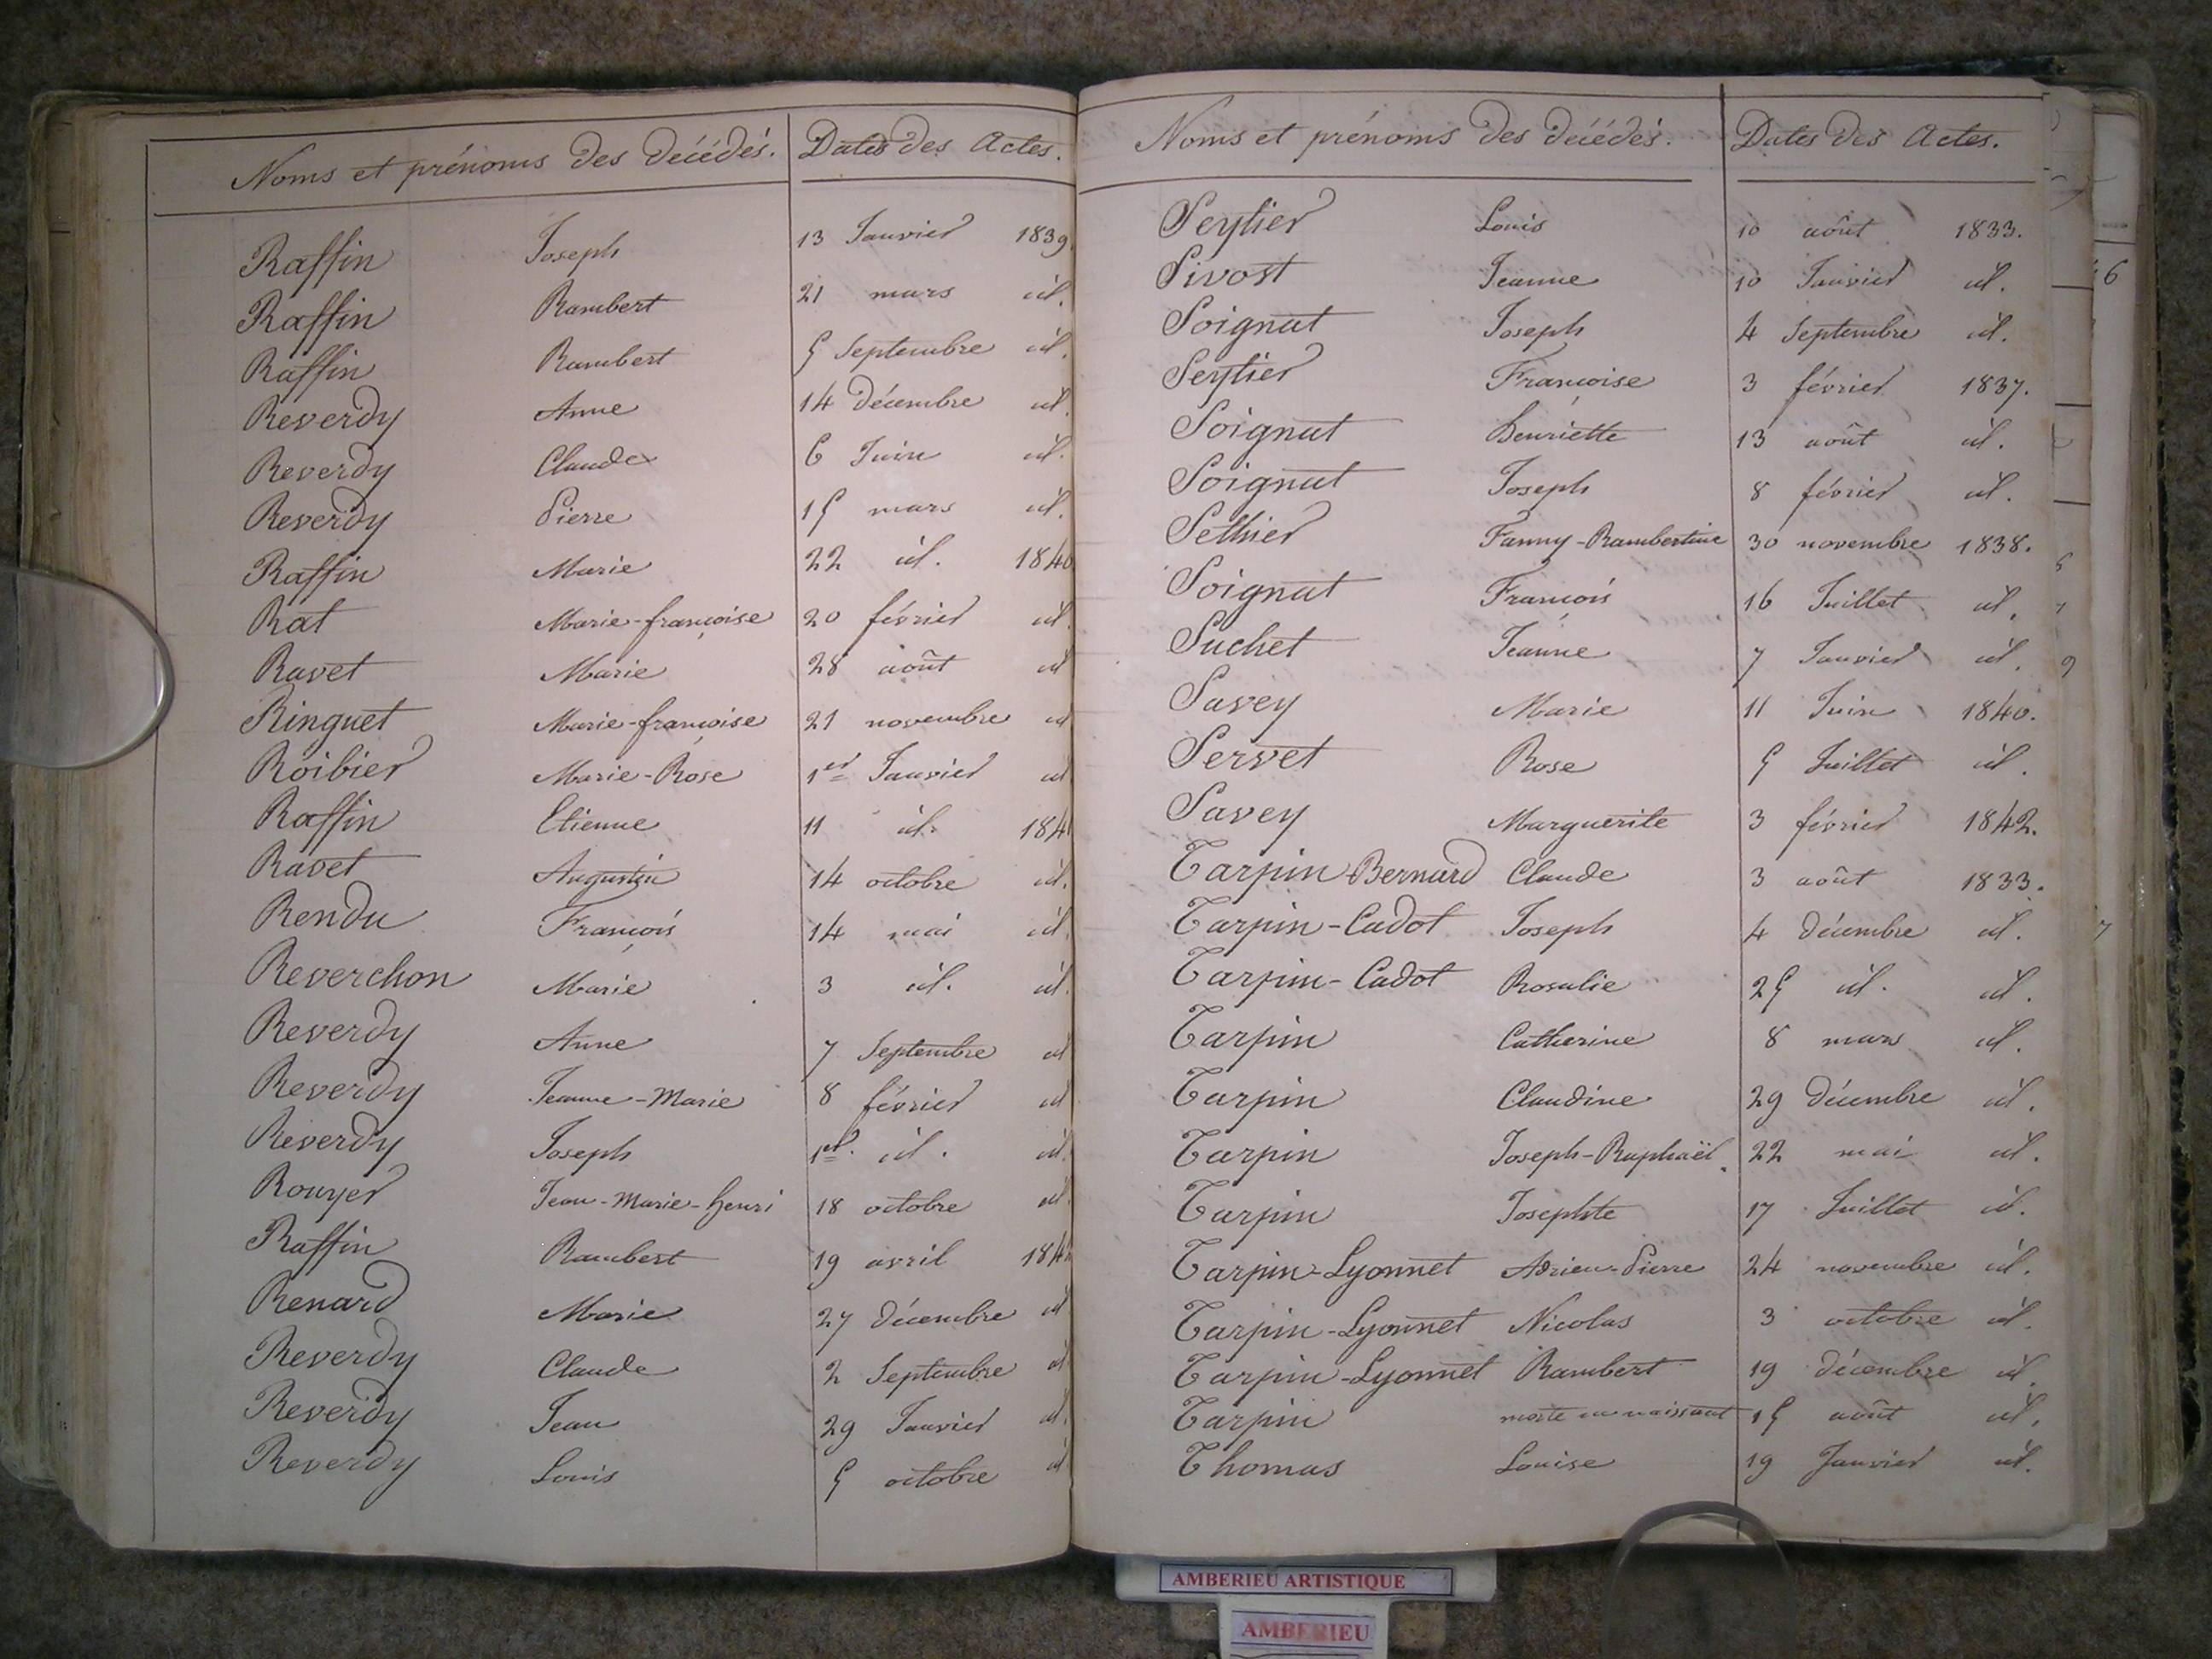 Noms et prénoms des décédés. Dates des Actes.
Raffin Joseph 13 Janvier 1839.
Raffin Rambert 21 mars id.
Raffin Rambert 5 Septembre id.
Reverdy Anne 14 décembre id.
Reverdy Claude 6 Juin id.
Reverdy Pierre 15 mars id.
Raffin Marie 22 id. 1840
Rat Marie-françoise 20 février id.
Ravet Marie 28 août id
Ringuet Marie-françoise 21 novembre id
Roibier Marie-Rose 1er Janvier id
Raffin Etienne 11 id. 1841
Ravet Augustin 14 octobre id.
Rendu François 14 mai id.
Reverchon Marie 3 id. id.
Reverdy Anne 7 Septembre id
Reverdy Jeanne-Marie 8 février id
Reverdy Joseph 1er. id. id.
Rouyer Jean-Marie-henri 18 octobre id.
Raffin Rambert 19 avril
Renard Marie 27 décembre id
Reverdy Claude 2 Septembre id
Reverdy Jean 29 Janvier id.
Reverdy Louis 5 octobre id
Noms et prénoms des décédés. Dates des Actes.
Seytier Louis 10 août 1833.
Sivost Jeanne 10 Janvier id.
Soignat Joseph 4 Septembre id.
Seytier Françoise 3 février 1837.
Soignat henriette 13 août id.
Soignat Joseph 8 février id.
Sethier Fanny-Rambertine 30 novembre 1838.
Soignat François 16 Juillet id.
Suchet Jeanne 7 Janvier id.
Savey Marie 11 Juin 1840.
Servet Rose 5 Juillet id.
Savey Marguerite 3 février 1842.
Tarpin Bernard Claude 3 août 1833.
Tarpin-Cadot Joseph 4 décembre id.
Tarpin-Cadot Rosalie 25 id. id.
Tarpin Catherine 8 mars id.
Tarpin Claudine 29 décembre id.
Tarpin Joseph-Raphaël. 22 mai id.
Tarpin Josephte 17 Juillet id.
Tarpin-Lyonnet Adrien-Pierre 24 novembre id.
Tarpin-Lyonnet Nicolas 3 octobre id.
Tarpin-Lyonnet Rambert 19 décembre id.
Tarpin morte en naissant 15 août id.
Thomas Louise 19 Janvier id.
6
7
AMBERIEU ARTISTIQUE
AMBERIEU